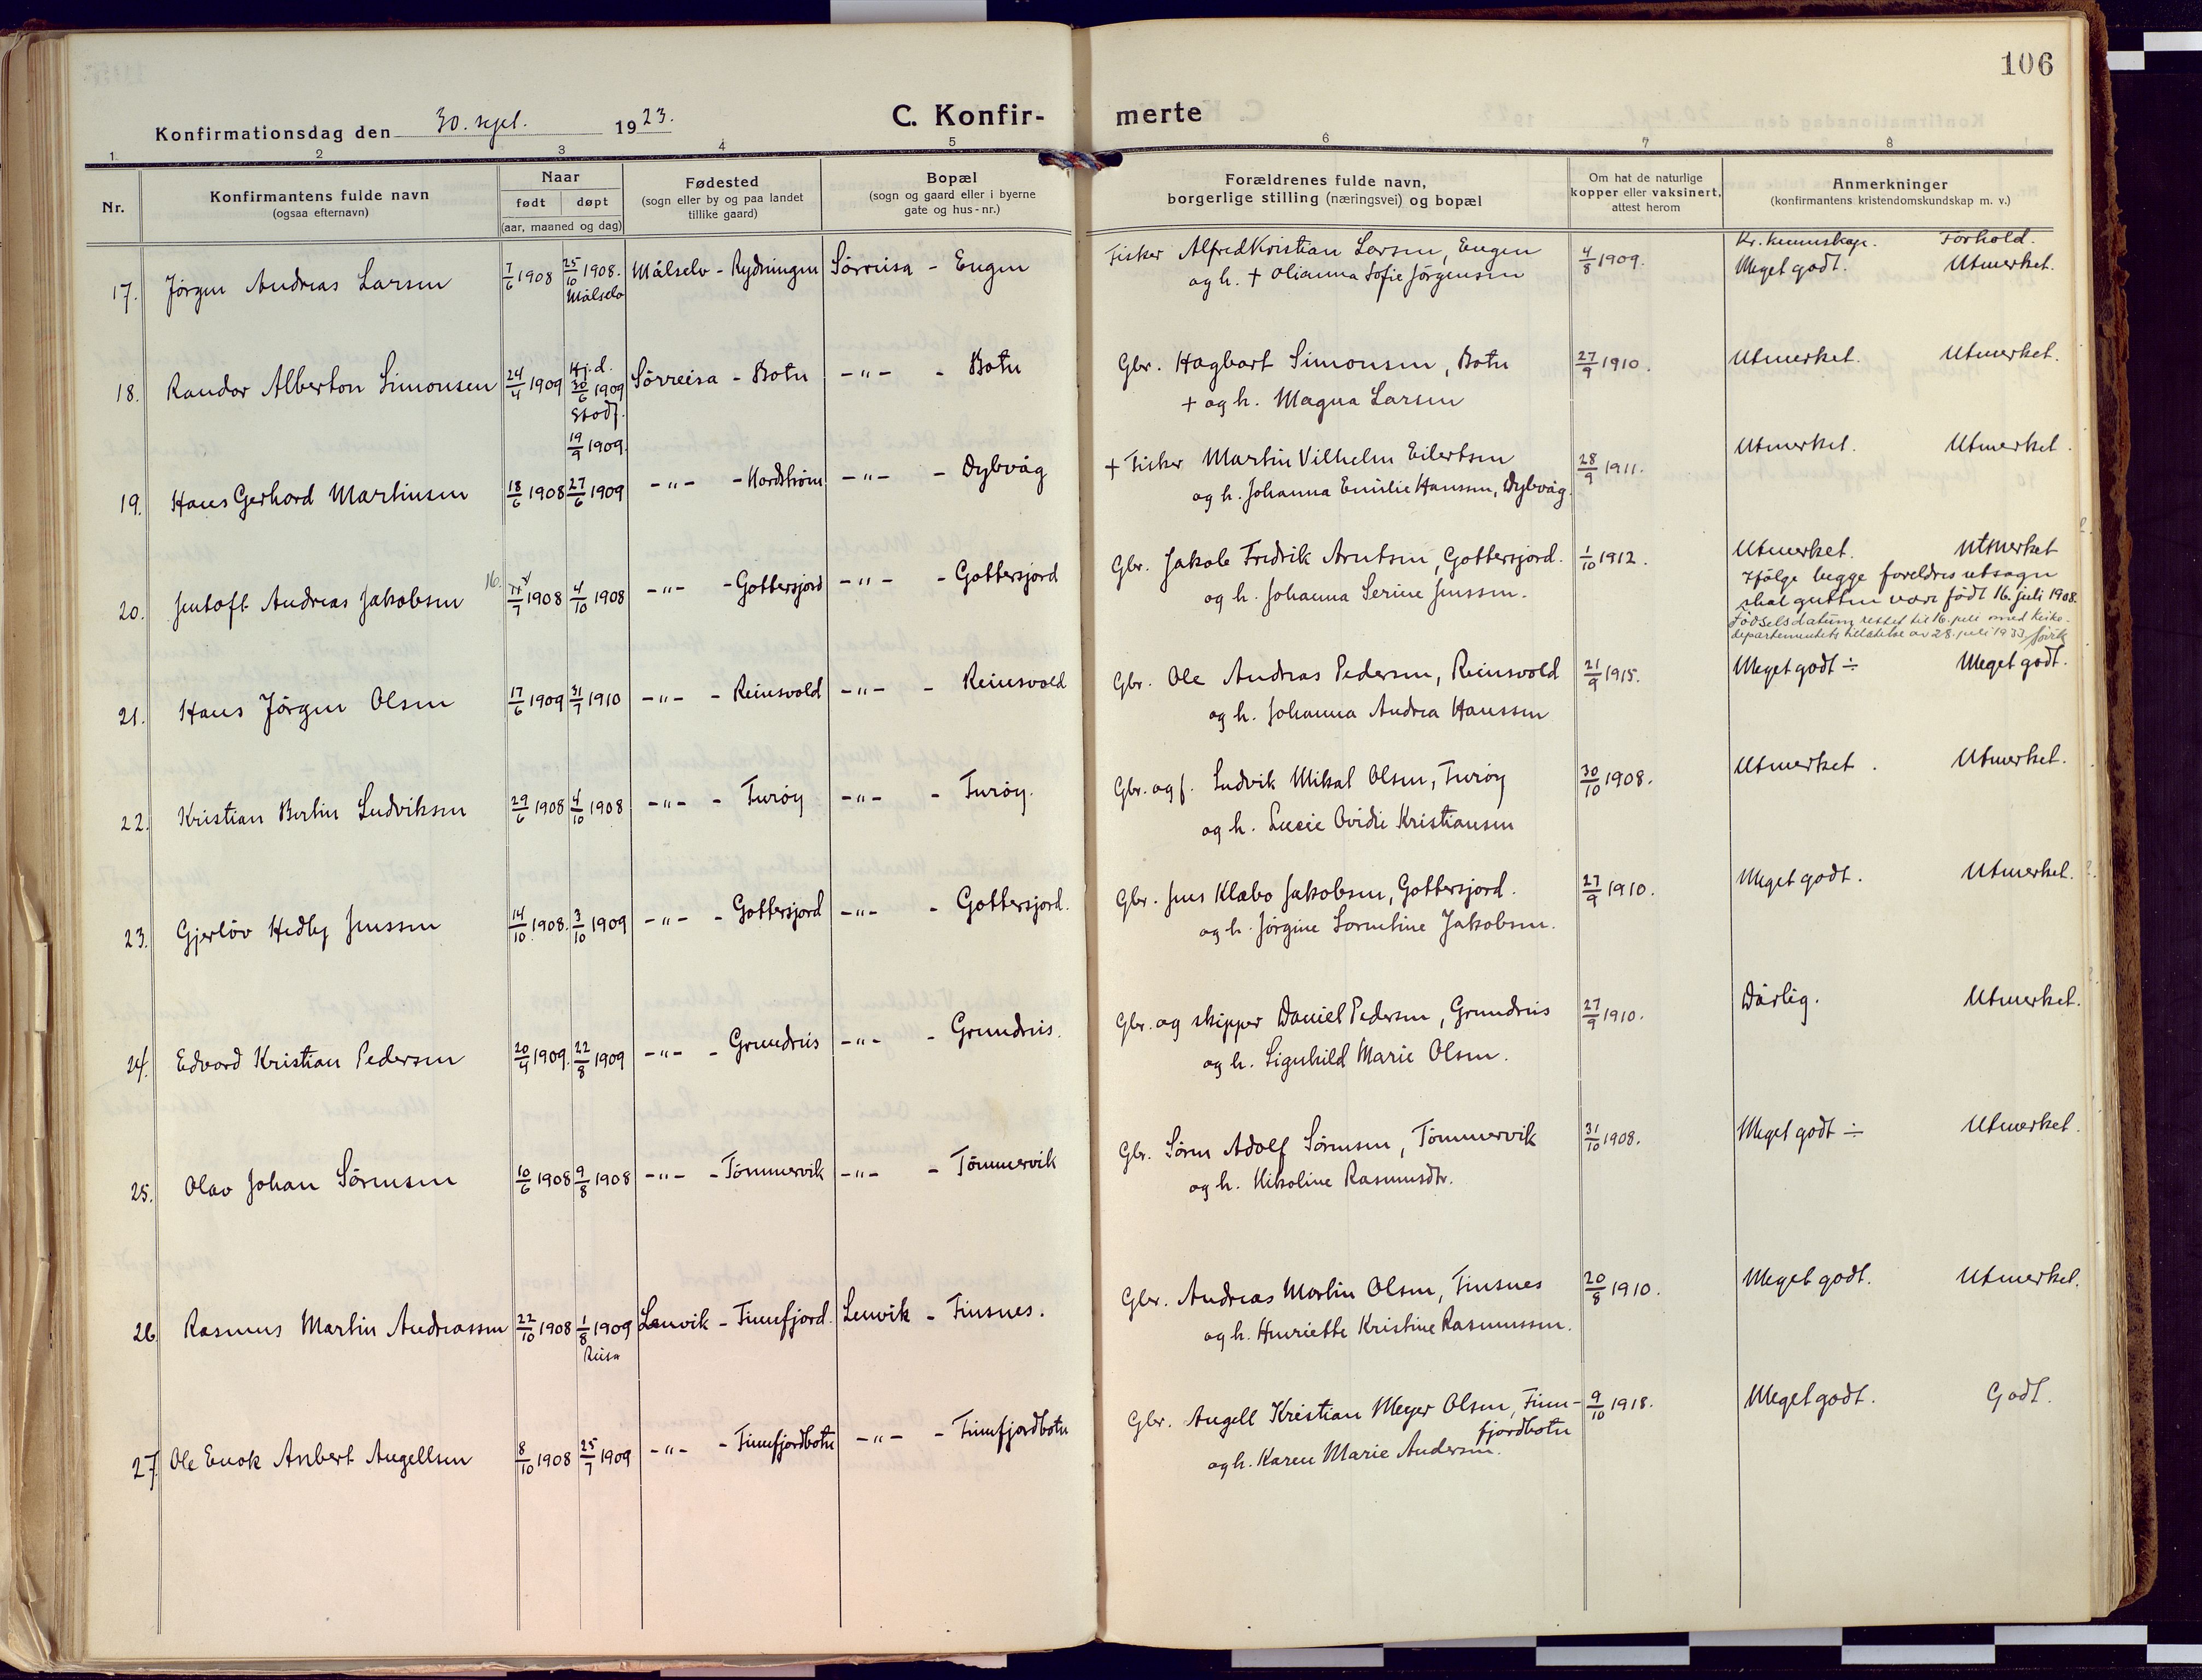 106
Konfirmationsdag den 30. sept. 1923.
C. Konfir-
merte
1. 2 3 4 5 6 7 8
Nr.
Konfirmantens fulde navn
(ogsaa efternavn)
Naar
født døpt
(aar, maaned og dag)
Fødested
(sogn eller by og paa landet
tillike gaard)
Bopæl
(sogn og gaard eller i byerne
gate og hus-nr.)
Forældrenes fulde navn,
borgerlige stilling (næringsvei) og bopæl
Om hat de naturlige
kopper eller vaksinert,
attest herom
Anmerkninger
(konfirmantens kristendomskundskap m. v.)
Kr. kunnskap. Forhold.
17. Jørgen Andreas Larsen 7/6 1908 25/10 1908. Målselv - Rydningen Sørreisa - Eugen Fisker Alfred Kristian Larsen, Eugen 4/8 1909. Meget godt. Utmerket.
Målselv og h. + Olianna Sofie Jørgensen
18. Randor Alberton Simonsen 24/4 1909 Hj. d. 20/6 1909 Sörreisa - Botn -"- - Botn Gbr. Hagbart Simonsen, Botn 27/9 1910. Utmerket. Utmerket.
Stadf. 19/9 1909. + og h. Magna Larsen
19. Hans Gerhard Martinsen 18/6 1908 27/6 1909 -"- - Nordstrøm -"- - Dybvåg + Fisker Martin Vilhelm Eilertsen 28/9 1911. Utmerket. Utmerket.
og h. Johanna Emilie Hanssen, Dybvåg.
20. Jentoft Andreas Jakobsen 16. /7 1908 4/10 1908 -"- - Gottersjord -"- - Gottersjord Gbr. Jakob Fredrik Arntsen, Gottersjord. 1/10 1912. Utmerket. Utmerket
og h. Johanna Serine Jenssen.
Ifølge begge foreldres utsagn
skal gutten være født 16. juli 1908.
Fødselsdatum rettet til 16. juli med kirke-
departementets tillatelse av 28. juli 1933
21. Hans Jörgen Olsen 17/6 1909 31/7 1910 -"- - Reinsvold -"- - Reinsvold Gbr. Ole Andreas Pedersen, Reinsvold 21/9 1915. Meget godt ÷ Meget godt.
og h. Johanna Andrea Hanssen
22. Kristian Bertin Ludviksen 29/6 1908 4/10 1908 -"- - Furøy -"- - Furøy. Gbr. og f. Ludvik Mikal Olsen, Furøy 30/10 1908. Utmerket. Utmerket.
og h. Lucie Ovidie Kristiansen
23. Gjerløv Hedly Jenssen 14/10 1908. 3/10 1909 -"- - Gottersjord -"- - Gottersjord. Gbr. Jens Klæbo Jakobsen, Gottersjord. 27/9 1910. Meget godt. Utmerket.
og h. Jørgine Sorentine Jakobsen.
24. Edvard Kristian Pedersen 20/4 1909. 22/8 1909 -"- - Grundreis -"- - Grundreis. Gbr. og skipper Daniel Pedersen, Grundreis 27/9 1910. Dårlig. Utmerket.
og h. Signhild Marie Olsen.
25. Olav Johan Sörensen 10/6 1908 9/8 1908 -"- - Tömmervik -"- - Tömmervik Gbr. Sören Adolf Sörensen, Tömmervik 31/10 1908. Meget godt ÷ Utmerket.
og h. Nikoline Rasmusdtr.
26. Rasmus Martin Andreassen 22/10 1908 1/8 1909 Lenvik - Finnfjord. Lenvik - Finsnes. Gbr. Andreas Martin Olsen, Finsnes 20/8 1910. Meget godt. Utmerket.
Reisa og h. Henriette Kristine Rasmussen.
27. Ole Enok Anbert Angellsen 8/10 1908 25/7 1909 -"- - Finnfjordbotn -"- - Finnfjordbotn Gbr. Angell Kristian Meyer Olsen, Finn- 9/10 1918. Meget godt. Godt.
fjordbotn
og h. Karen Marie Andersen.